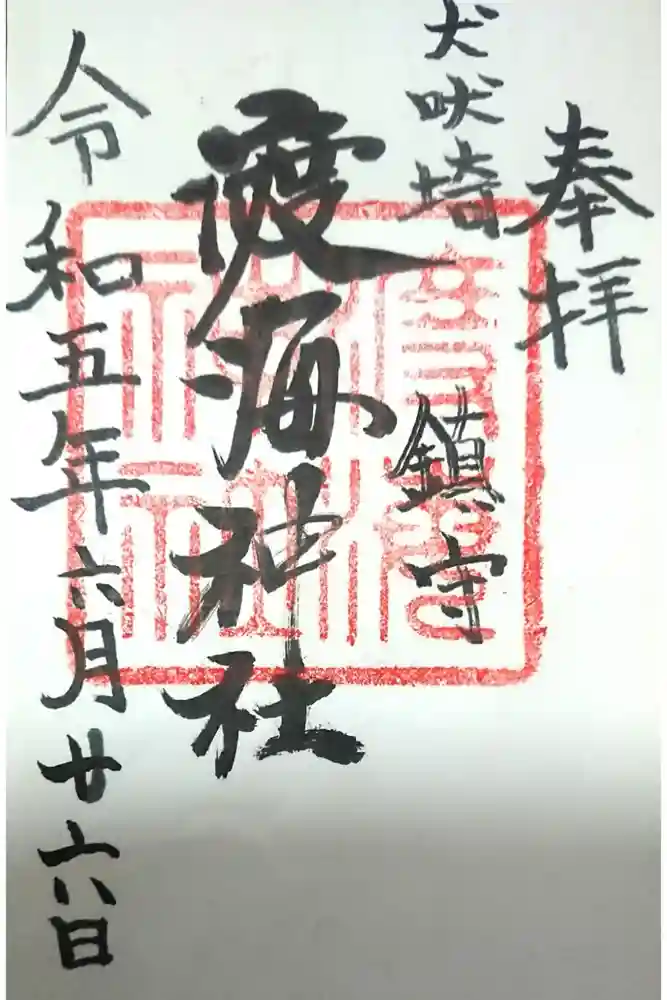 奉拝
犬吠埼 鎮守
渡海神社
令和五年六月廿六日